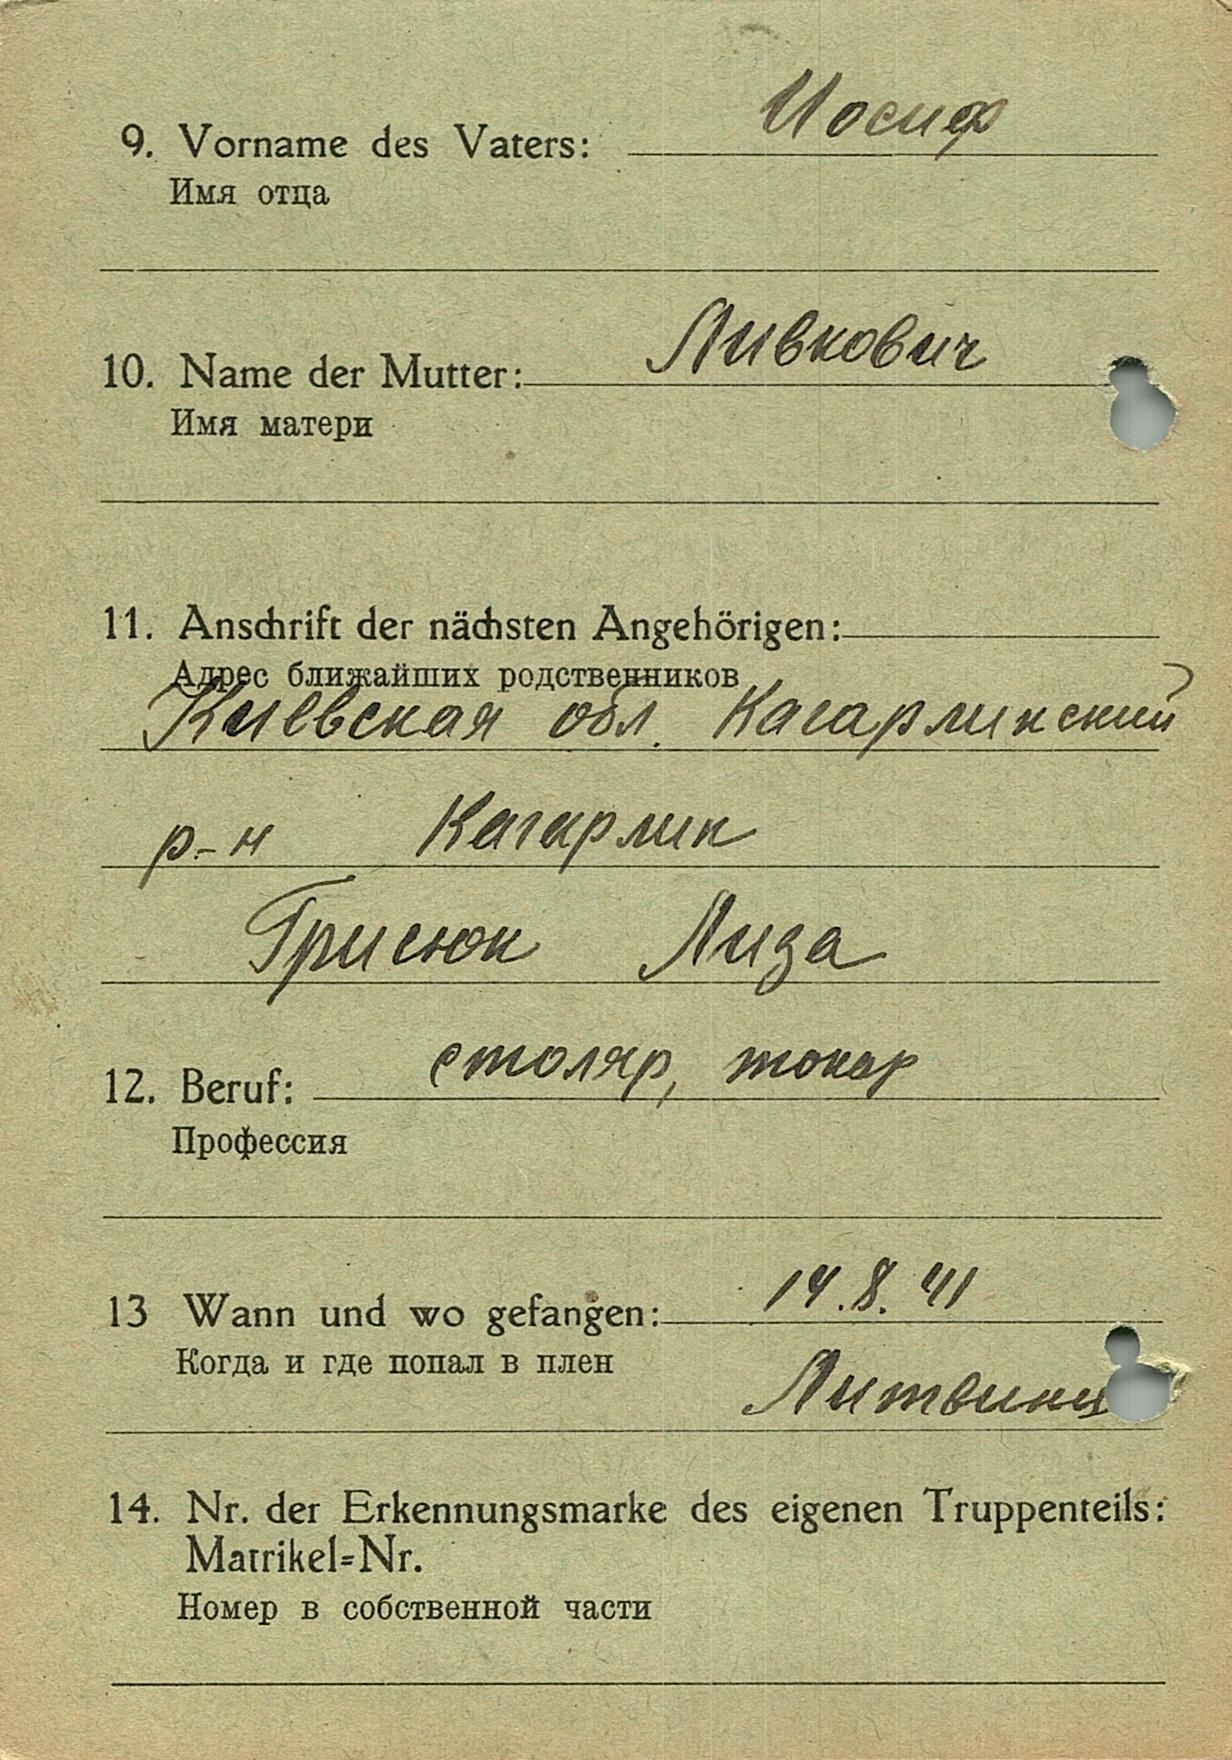 Иосиф
9. Vorname des Vaters:
Имя отца
Ливкович
10. Name der Mutter:
Имя матери
11. Anschrift der nächsten Angehörigen:
Адрес ближайших родственников
Киевская обл. Кагарликский
р-н Кагарлик
Грисюк Лиза
12. Beruf: столяр, токар
Профессия
13 Wann und wo gefangen: 14.8.41
Когда и где попал в плен
14. Nr. der Erkennungsmarke des eigenen Truppenteils:
Matrikel=Nr.
Номер в собственной части